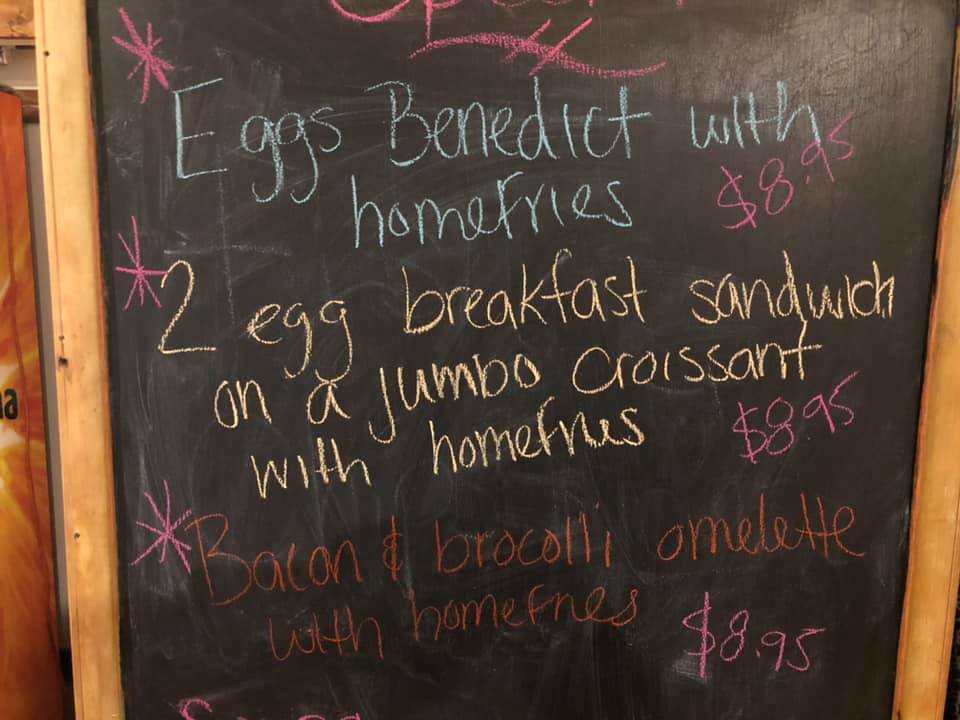 Eggs Benedict with
homefries $8.95
2 egg breakfast sandwich
on a jumbo croissant
with homefries $8.95
Bacon & brocolli omelette
with homefries $8.95